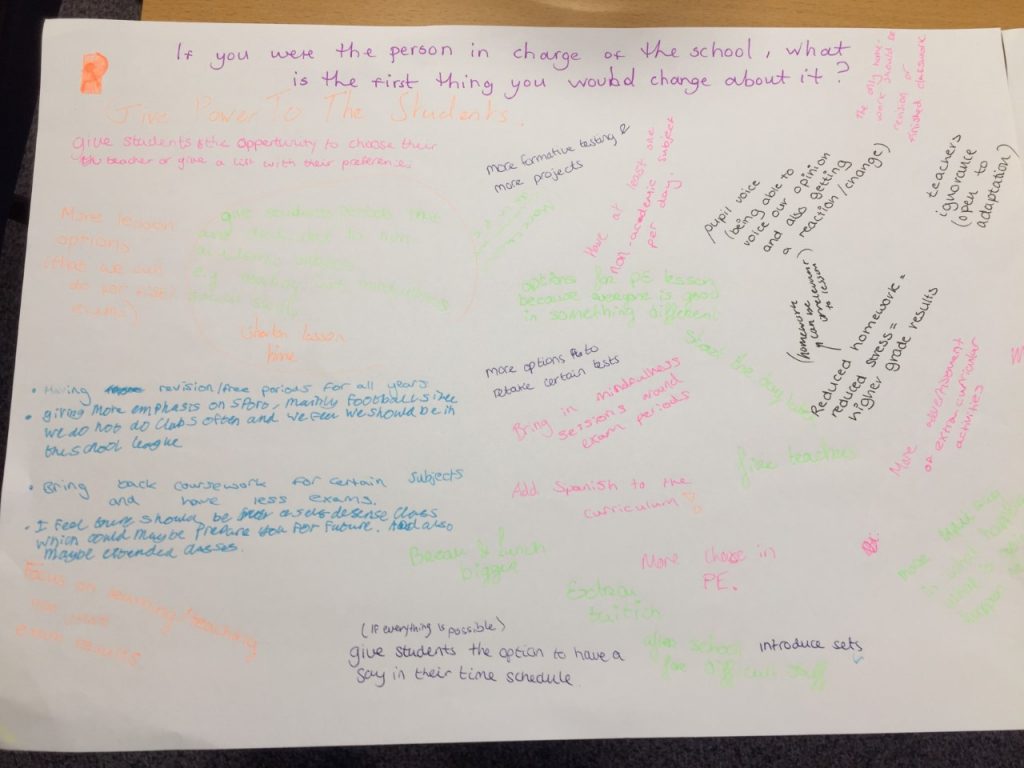 If you were the person in charge of the school, what
is the first thing you would change about it?
Give Power To The Students.
give students the opportunity to choose their
teacher or give a list with their preferences
More lesson
options
that we can
do
give students periods that
are
e.g.
Shorter lesson
time
more formative testing &
more projects
Have at least one
non-academic subject
per day.
The only home-
work should be
revision or
finished classwork
pupil voice
(being able to
voice our opinion
and also getting
a reaction/change)
teachers
ignorance
(open to
adaptation)
options for PE lesson
because everyone is good
in something different
(homework
can be
irrelevant
to lesson)
Reduced homework =
reduced stress =
higher grade results
Start the day later
more options to
retake certain tests
Bring in mindfulness
sessions around
exam periods
More advertisement
of extra-curricular
activities
• Having revision/free periods for all years
• giving more emphasis on sport, mainly football since
we do not do clubs often and we feel we should be in
the school league
• Bring back coursework for certain subjects
and have less exams.
• I feel there should be a self desense class
which could maybe prepare you for future. And also
maybe extended classes.
fire teachers
Add Spanish to the
curriculum
Break & lunch
bigger
More choice in
PE.
Focus on learning/teaching
not just
exam results.
Extra
tuition
after school
for difficult stuff
(if everything is possible)
give students the option to have a
say in their time schedule.
introduce sets
more
in what